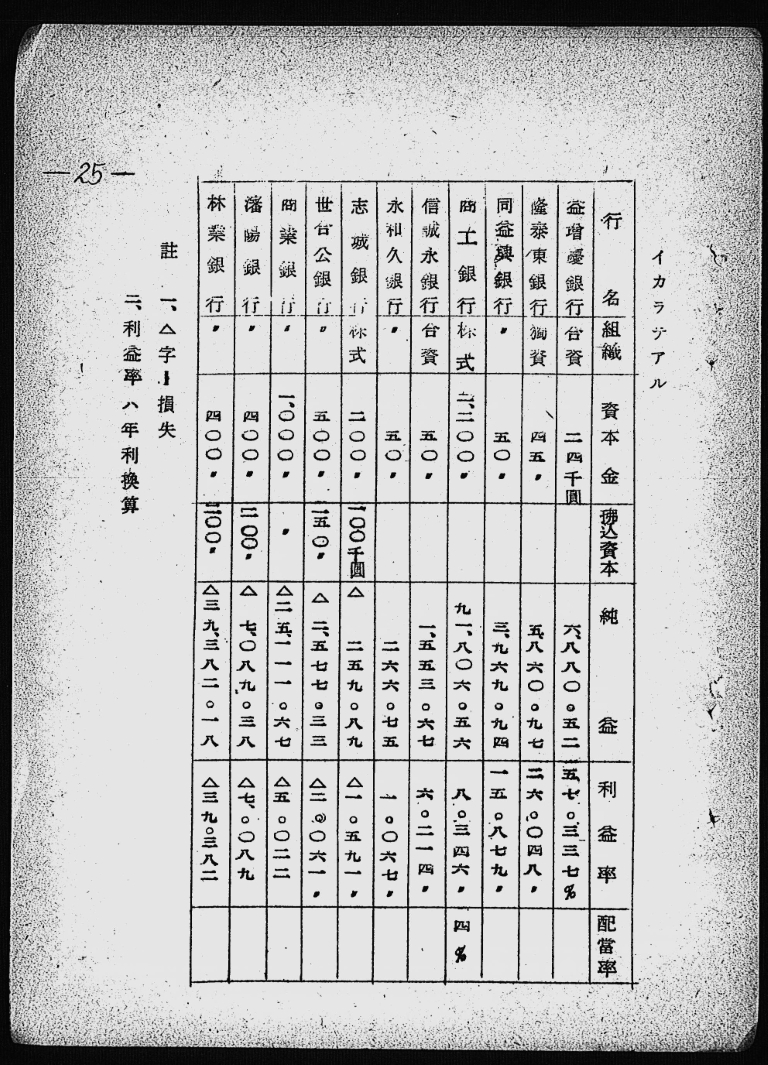 —25—
イカラテアル
行名 組織 資本金 拂込資本 純益 利益率 配當率
益增慶銀行 合資 二四千圓 六、八八〇。五二 五七。三三七%
隆泰東銀行 獨資 四五〃 五、八六〇。九七 二六。〇四八〃
同益興銀行 〃 五〇〃 三、九六九。九四 一五。八七九〃
商工銀行 株式 二、二〇〇〃 九一、八〇六。五六 八。三四六〃 四%
信誠永銀行 合資 五〇〃 一、五五三。六七 六。二一四〃
永和久銀行 〃 五〇〃 二六六。七五 一。〇六七〃
志城銀行 株式 二〇〇〃 一〇〇千圓 △二五九。八九 △一。五九一〃
世合公銀行 〃 五〇〇〃 二五〇〃 △二、五七七。三三 △二。〇六一〃
商業銀行 〃 一、〇〇〇〃 〃 △二五、一一一。六七 △五。〇二二
瀋陽銀行 〃 四〇〇〃 二〇〇〃 △七、〇八九。三八 △七。〇八九
林業銀行 〃 四〇〇〃 二〇〇〃 △三九、三八二。一八 △三九。三八二
註 一、△字ハ損失
二、利益率ハ年利換算